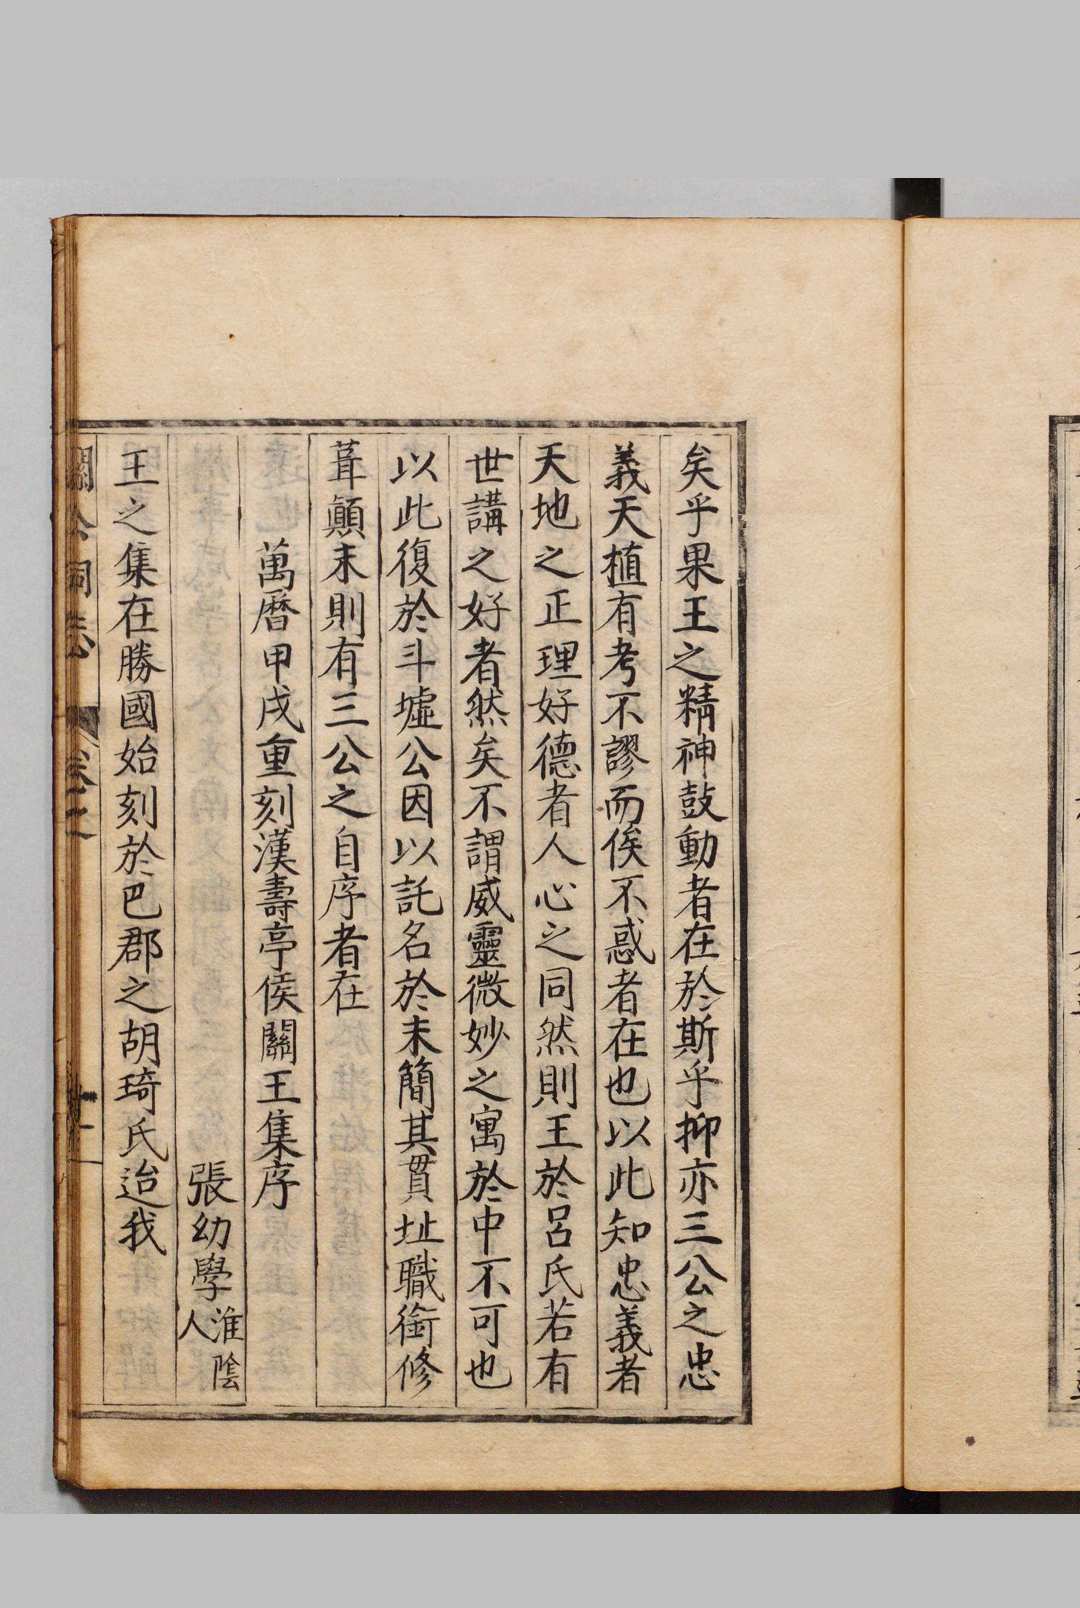 矣乎果王之精神鼓動者在於斯乎抑亦三公之忠
義天植有考不謬而俟不惑者在也以此知忠義者
天地之正理好德者人心之同然則王於呂氏若有
世講之好者然矣不謂威靈微妙之寓於中不可也
以此復於斗墟公因以託名於末簡其貫址職銜修
葺顛末則有三公之自序者在
萬曆甲戌重刻漢壽亭侯關王集序
張幼學淮陰人
王之集在勝國始刻於巴郡之胡琦氏迨我
關公祠志 卷之